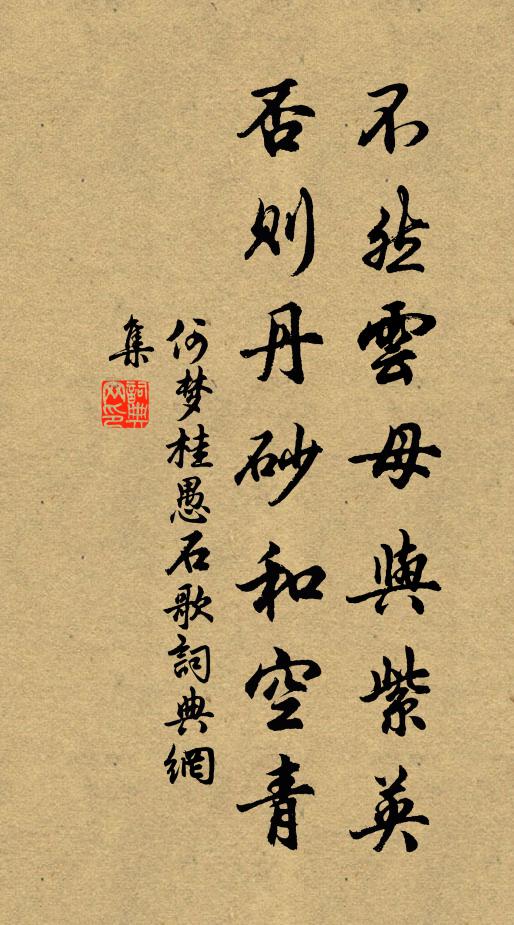 不然雲母與紫英
否則丹砂和空青
何梦桂愚石歌詞典網
集
詞典
网印